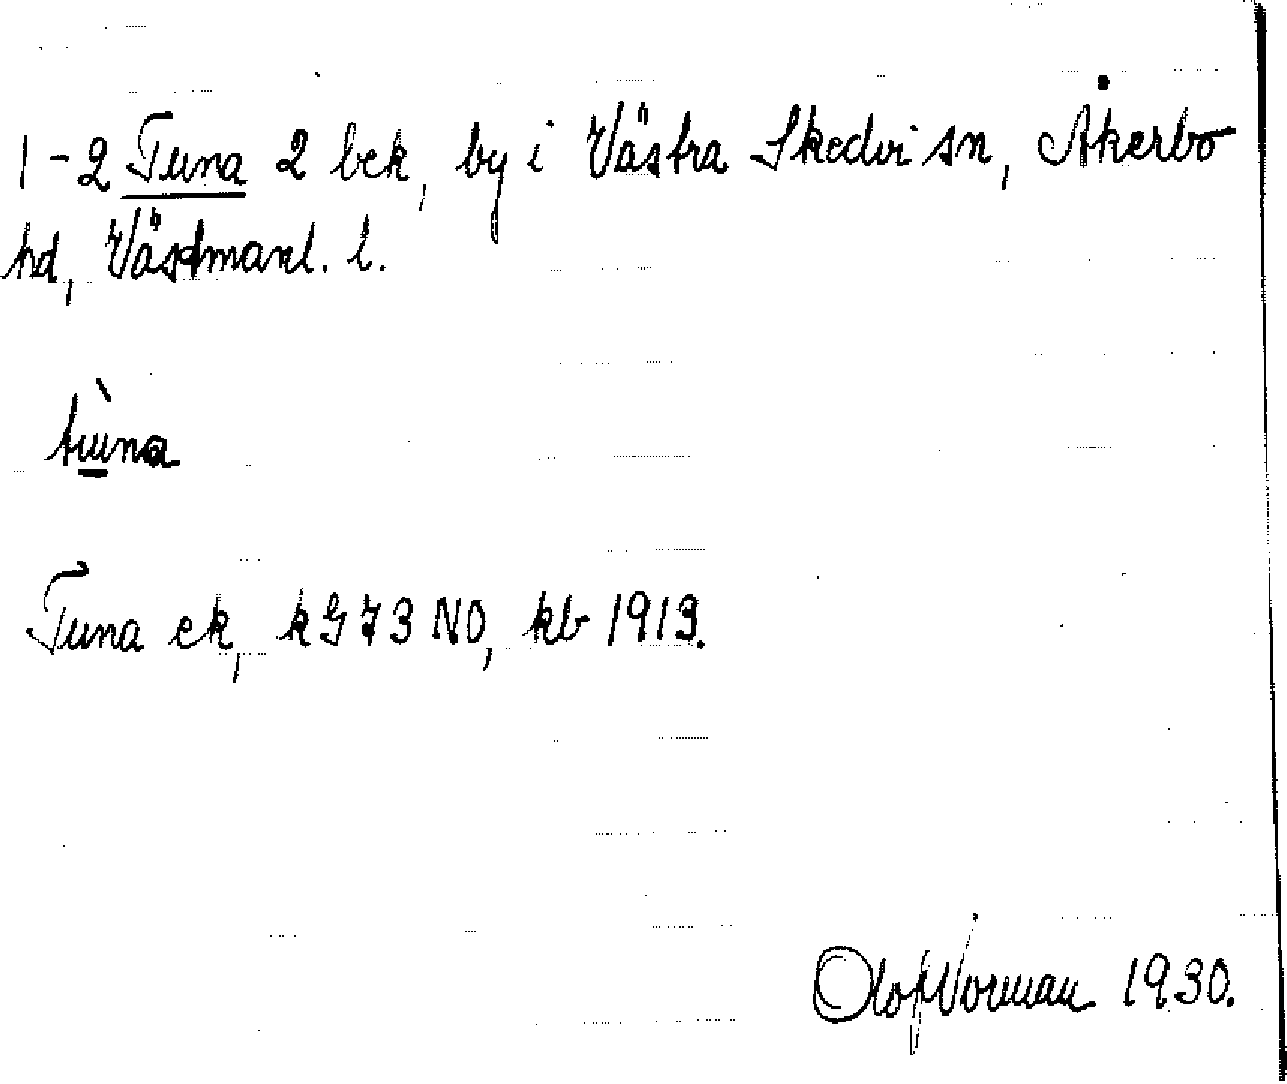 1-2 Tuna 2 bek, by i Västra Skedvi sn, Åkerbo
hd, Västmanl. l.
tùna
Tuna ek, k G 73 NO, kb 1913.
Olof Norman 1930.